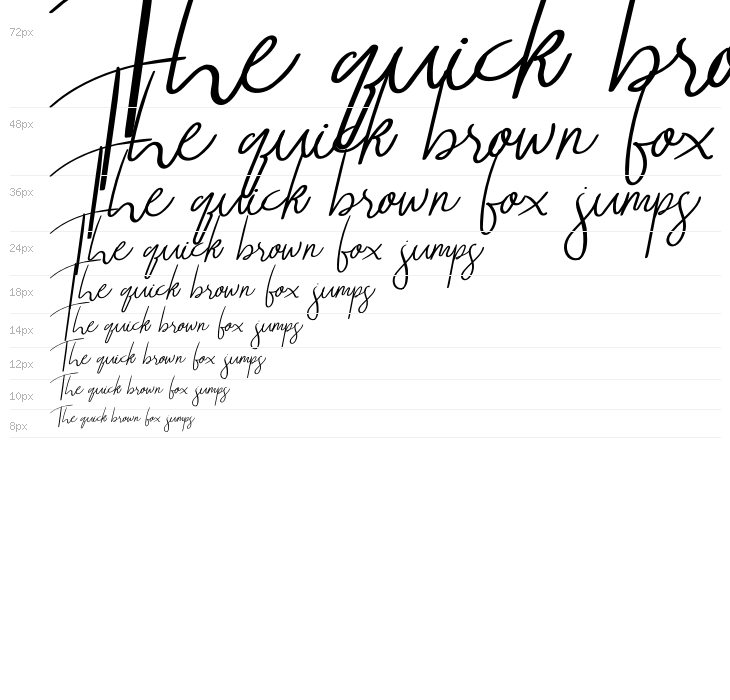 72px The quick bro
48px The quick brown fox
36px The quick brown fox jumps
24px The quick brown fox jumps
18px The quick brown fox jumps
14px The quick brown fox jumps
12px The quick brown fox jumps
10px The quick brown fox jumps
8px The quick brown fox jumps